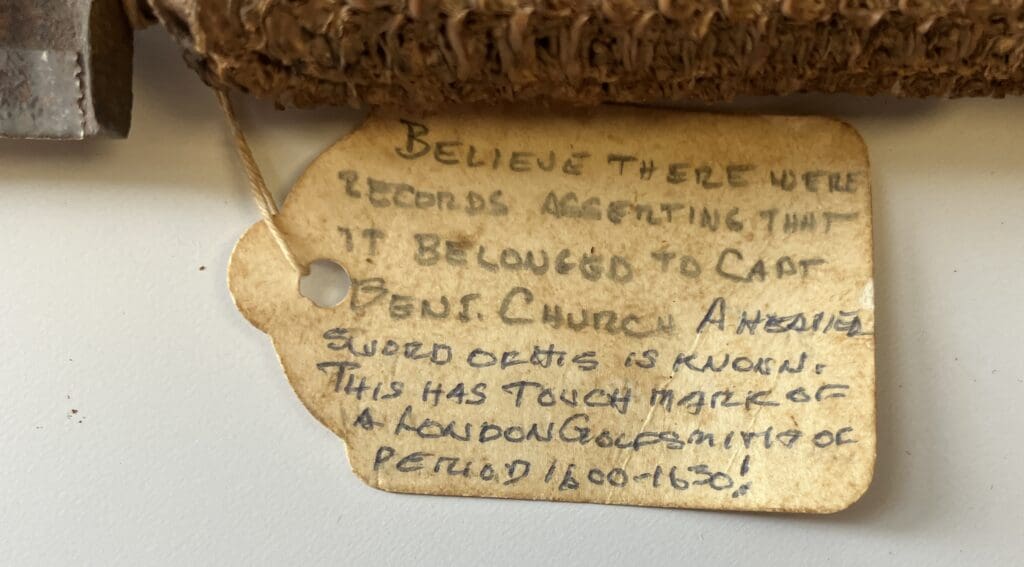 BELIEVE THERE WERE
RECORDS ASSERTING THAT
IT BELONGED TO CAPT
BENJ. CHURCH A HEAVIER
SWORD OF HIS IS KNOWN.
THIS HAS TOUCH MARK OF
A LONDON GOLDSMITH OF
PERIOD 1600-1630!